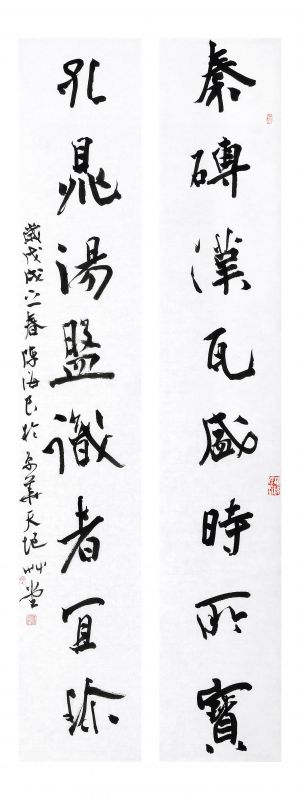 秦磚漢瓦盛時所寶
孔鼎湯盤識者宜珍
歲戊戌之春陳海良於京華天艸堂